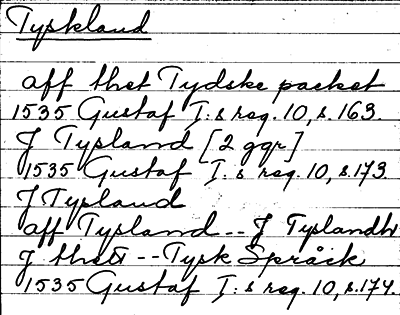 Tyskland
aff thet Tydske packet
1535 Gustaf I:s reg. 10, s. 163.
J Typland [2 ggr]
1535 Gustaf I:s reg. 10, s. 173
J Typland
aff Typland -- J Typlandh
J thett -- Tysk Språk
1535 Gustaf I:s reg. 10, s. 174.